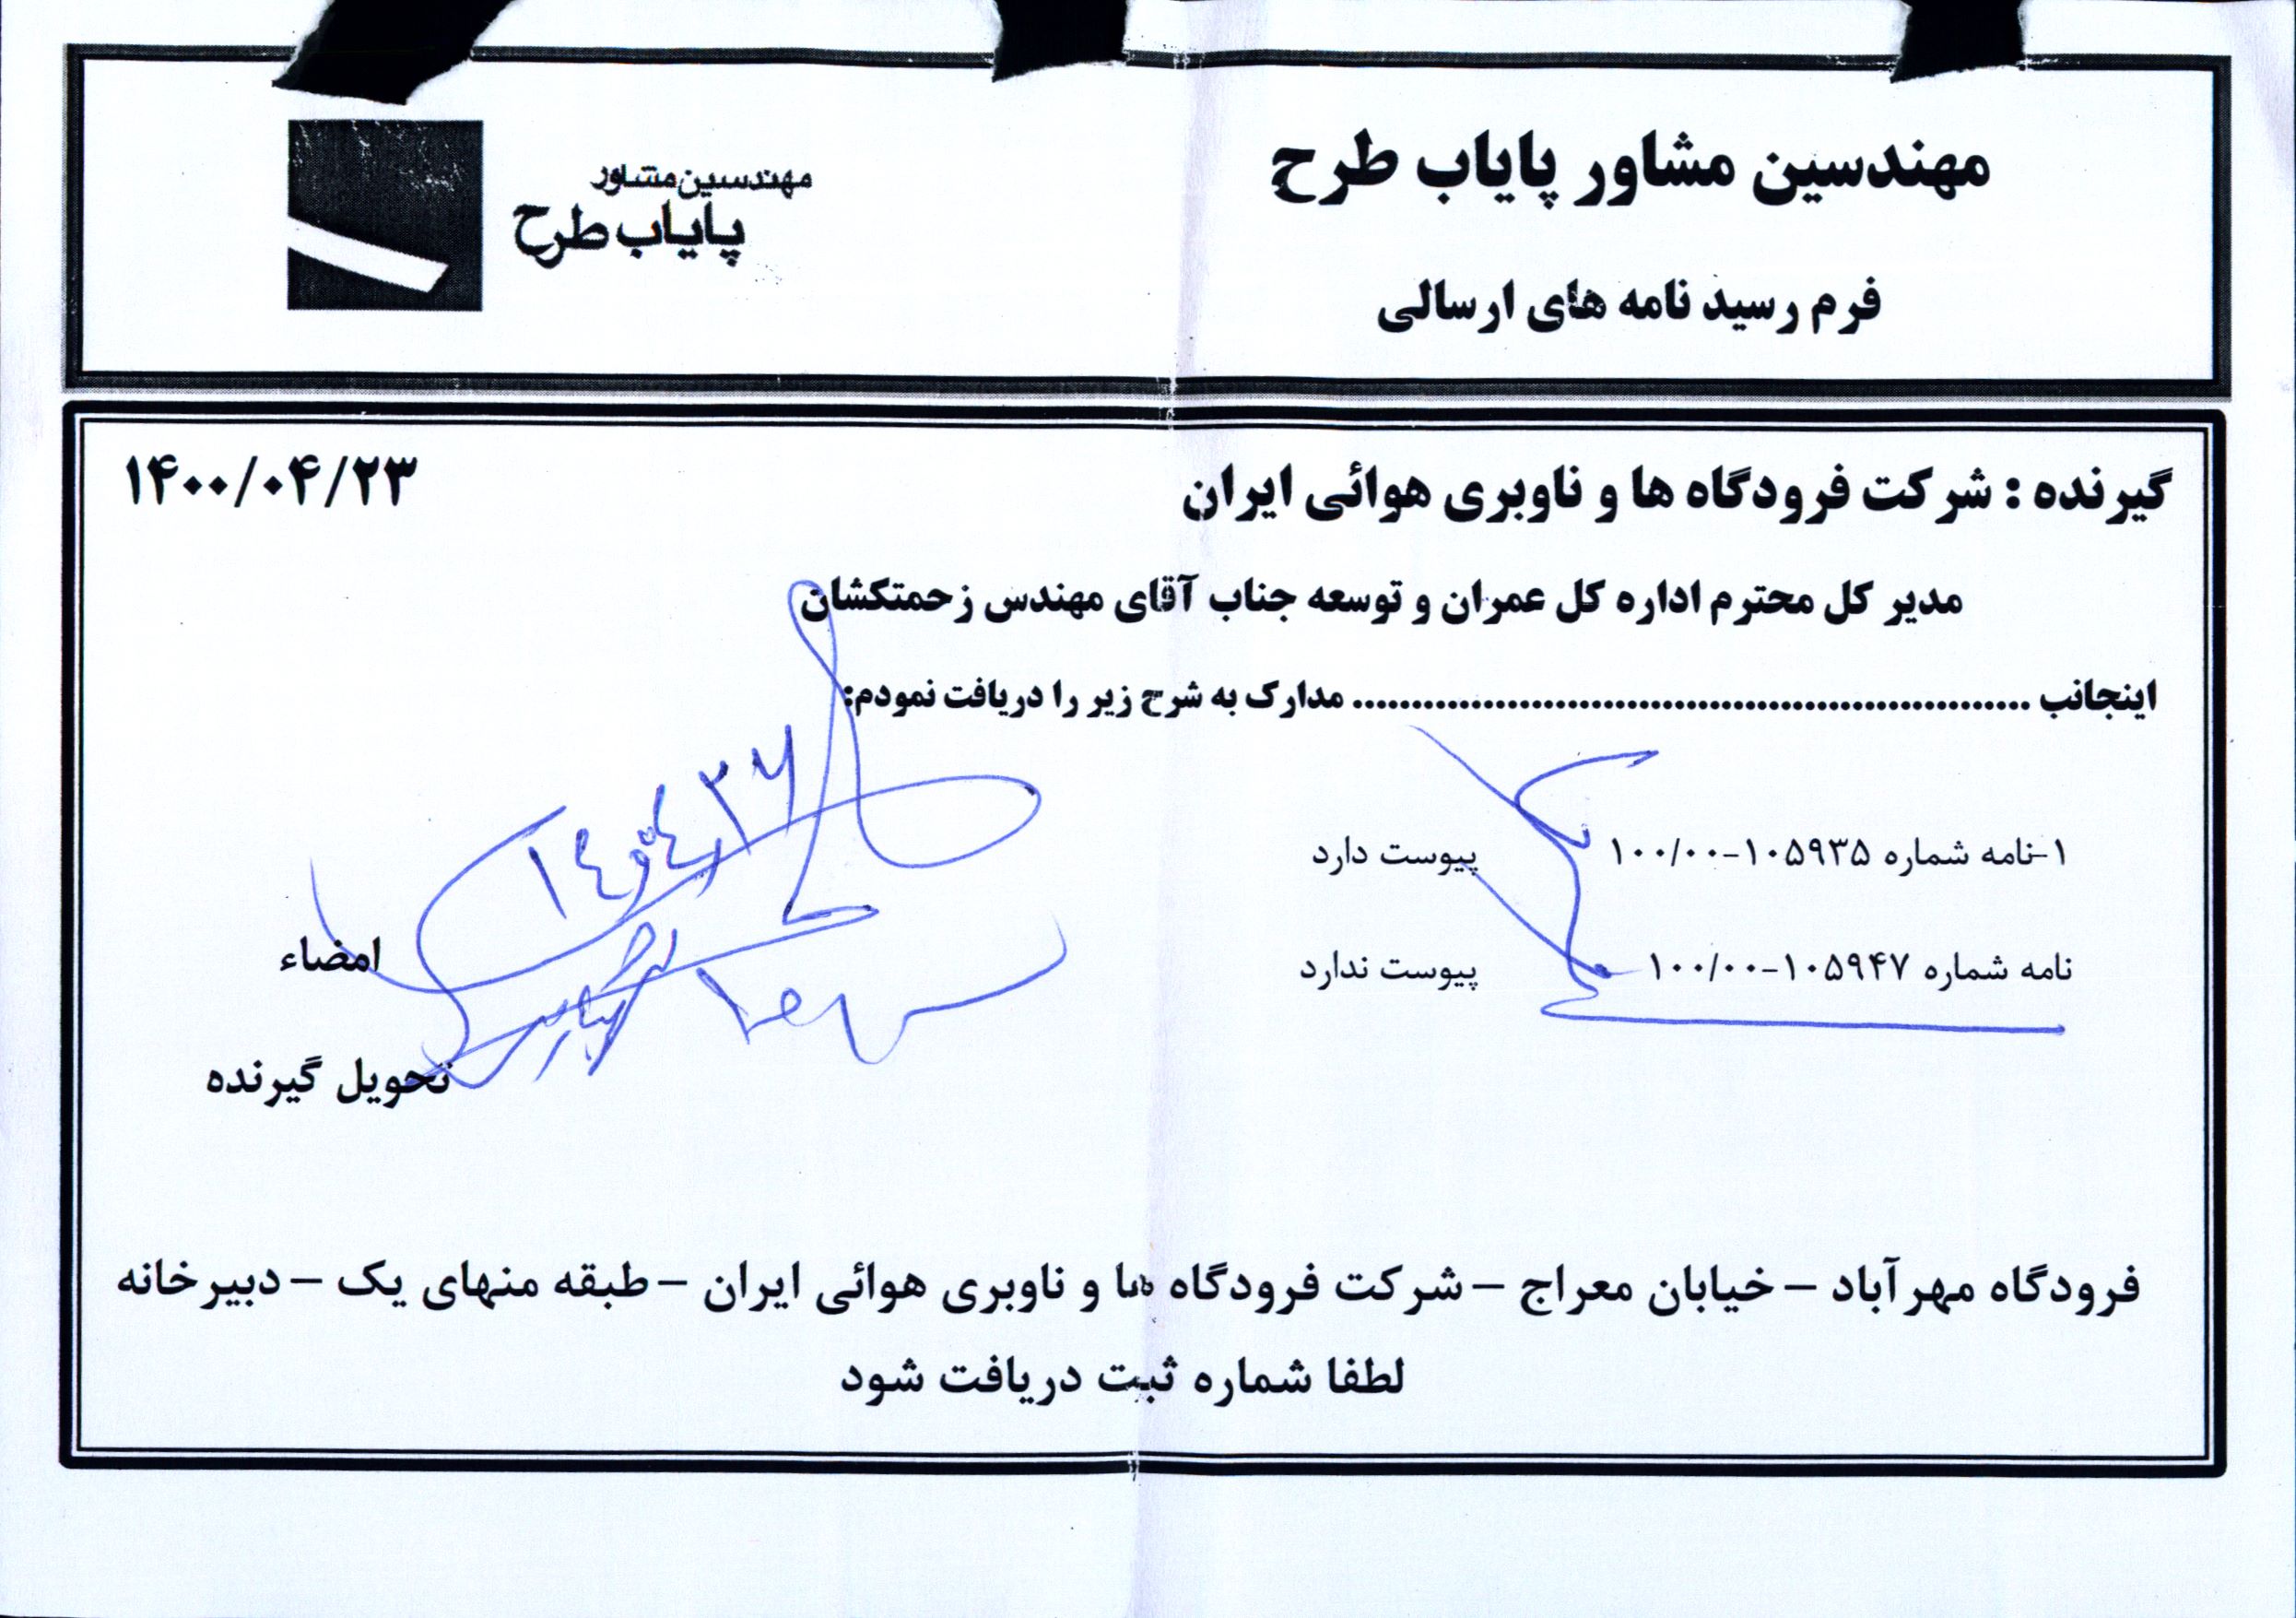 مهندسین مشاور پایاب طرح
مهندسین مشاور
پایاب طرح
فرم رسید نامه های ارسالی
گیرنده : شرکت فرودگاه ها و ناوبری هوائی ایران
۱۴۰۰/۰۴/۲۳
مدیر کل محترم اداره کل عمران و توسعه جناب آقای مهندس زحمتکشان
اینجانب ........................................................ مدارک به شرح زیر را دریافت نمودم:
۱-نامه شماره ۱۰۵۹۳۵-۱۰۰/۰۰ پیوست دارد
نامه شماره ۱۰۵۹۴۷-۱۰۰/۰۰ پیوست ندارد
امضاء
تحویل گیرنده
فرودگاه مهرآباد – خیابان معراج – شرکت فرودگاه ها و ناوبری هوائی ایران – طبقه منهای یک – دبیرخانه
لطفا شماره ثبت دریافت شود